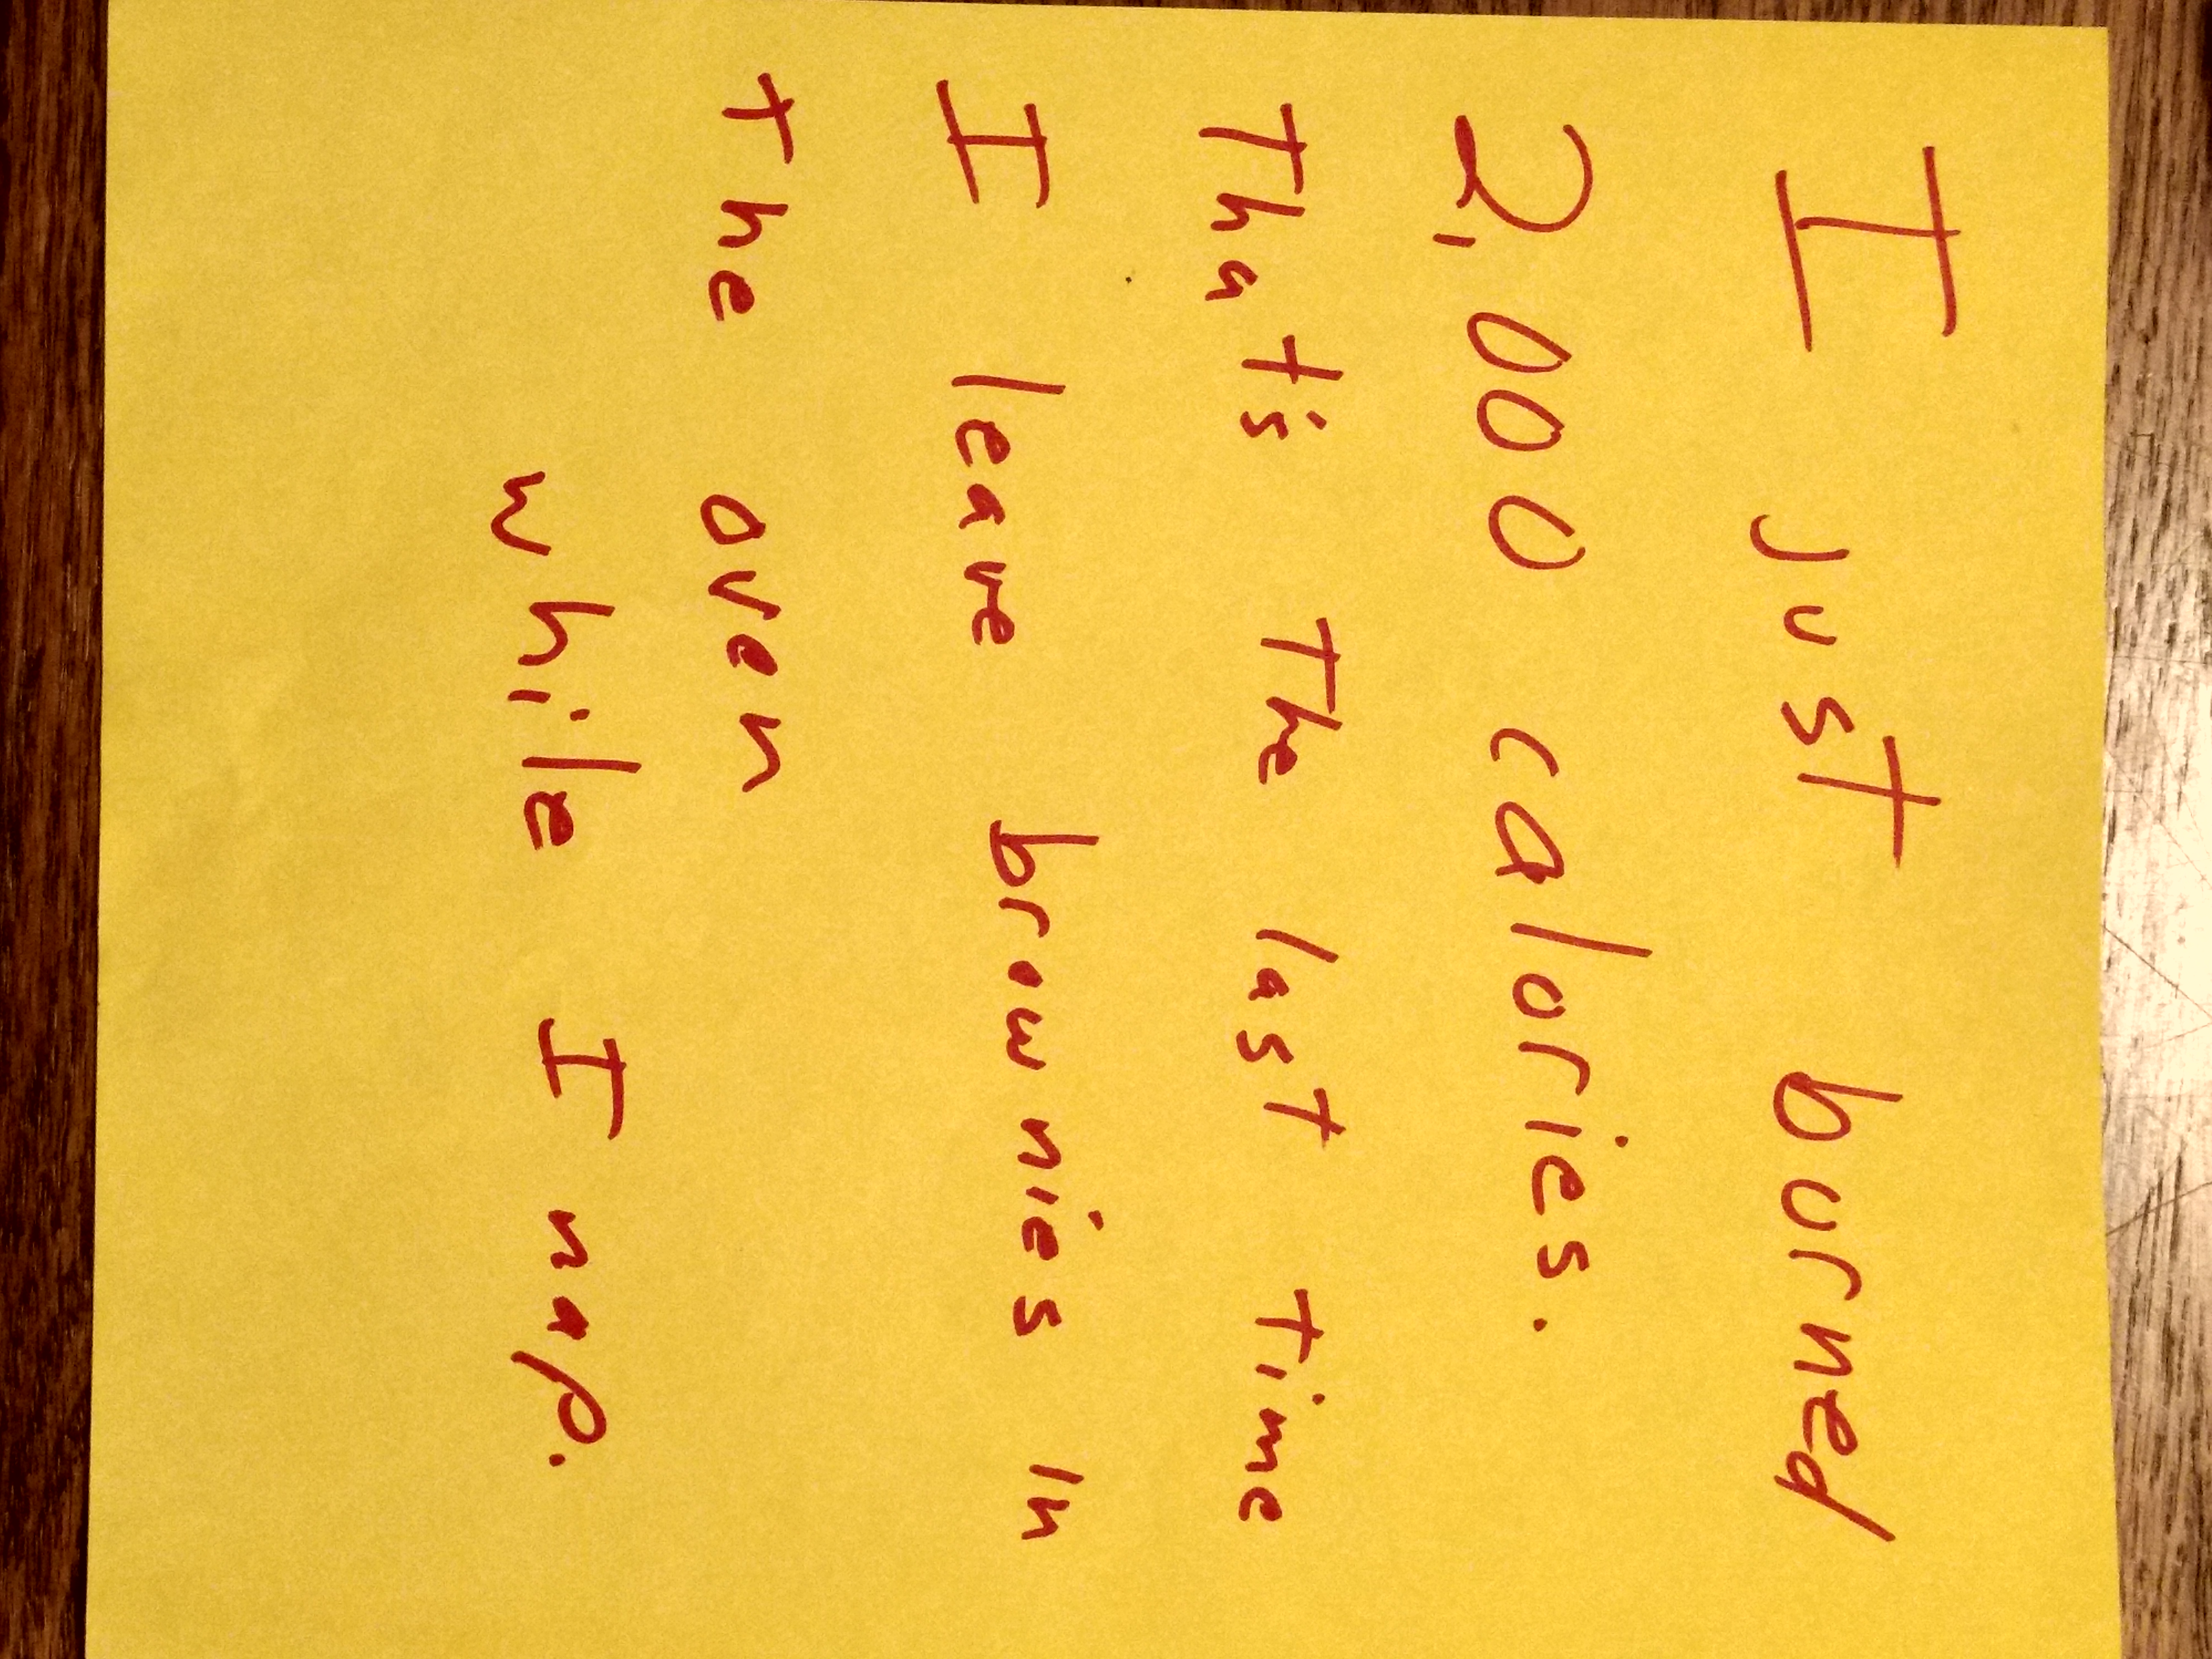 I just burned
2,000 calories.
That's The last Time
I leave brownies in
the oven
while I nap.